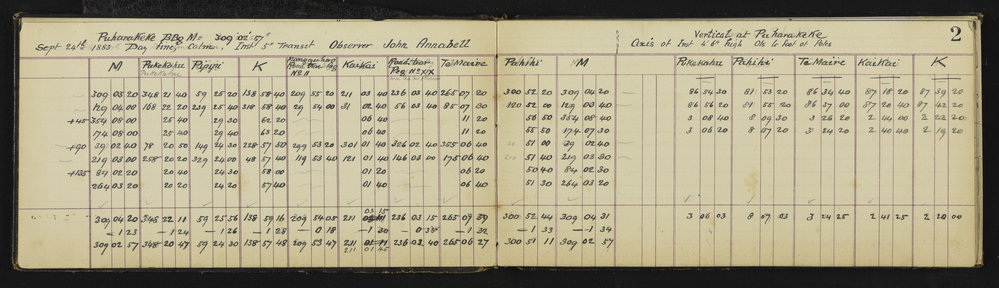 Puharakeke Bbg M = 309° 02' 57"
Sept 24th 1885 Day fine, Calm, Inst 5" Transit Observer John Annabell
M Pukekahu Pipipi K Road Peg No 11 KaiKai Road trav Peg No XIX Te Maire Pahihi M
Pukekahu
309 03 20 348 21 40 59 07 20 138 58 40 209 55 20 211 03 40 236 03 40 265 07 20 300 52 20 309 04 20
129 04 00 168 22 20 239 25 40 318 58 40 29 54 00 31 02 40 56 03 40 85 07 30 120 52 00 129 03 40
+45 354 08 00 25 40 29 30 62 20 06 40 11 20 56 50 354 08 40
174 08 00 25 40 29 40 63 20 06 40 11 20 55 50 174 07 30
+90 39 02 40 78 20 50 149 24 30 228 57 50 299 53 20 301 01 40 326 02 40 355 06 40 51 00 39 02 40
219 03 00 258 20 20 329 24 00 48 57 40 119 53 40 121 01 40 146 03 00 175 06 40 51 40 219 03 30
+135 84 02 20 20 40 24 30 58 00 01 20 06 20 50 40 84 02 30
264 03 20 20 20 24 20 57 40 01 40 06 40 51 30 264 03 20
03 15
309 04 20 348 22 11 59 25 56 138 59 16 209 54 05 211 236 03 15 265 09 39 300 52 44 309 04 31
– 1 23 – 1 24 – 1 26 – 1 28 – 0 18 – 1 30 – 0 35 – 1 32 – 1 33 – 1 34
309 02 57 348 20 47 59 24 30 138 57 48 209 53 47 211 236 02 40 265 06 27 300 51 11 309 02 57
211 01 45
2
Vertical at Puharakeke
Axis of Inst 4' 6" high Obs to foot of Poles
Pukekahu Pahihi Te Maire KaiKai K
86 54 30 81 53 20 86 34 40 87 18 20 87 39 20
86 56 20 81 55 20 86 37 00 87 20 40 87 42 20
3 08 40 8 09 30 3 26 20 2 44 00 2 22 20
3 06 20 8 07 20 3 24 20 2 40 40 2 19 20
3 06 03 8 07 03 3 24 25 2 41 25 2 20 00